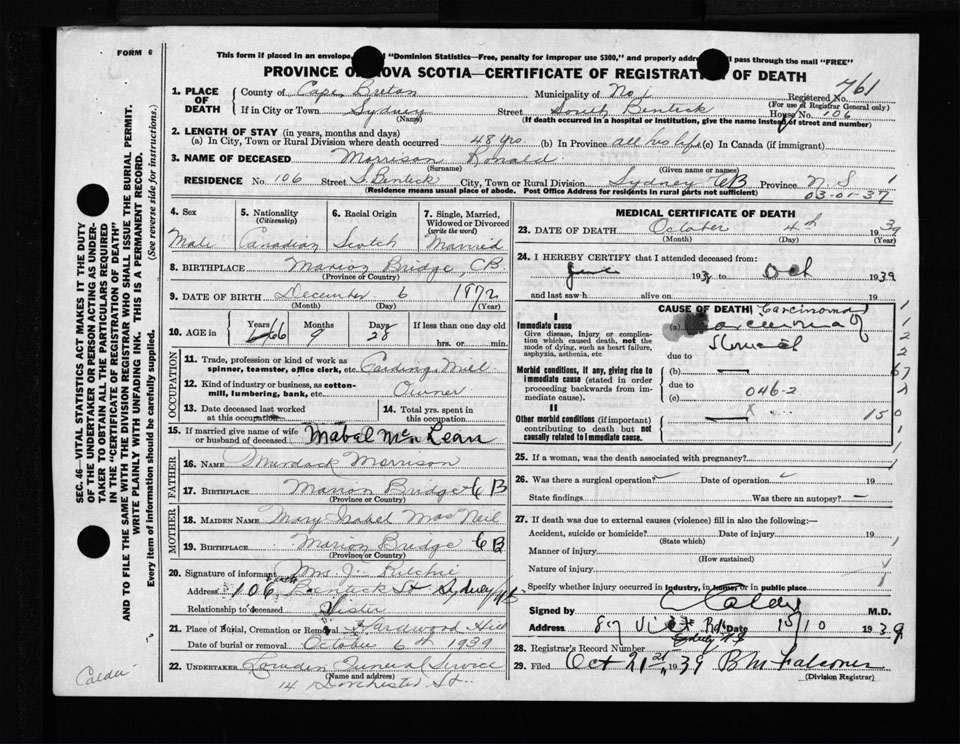 FORM 6
This form if placed in an envelope, "Dominion Statistics—Free, penalty for improper use $300," and properly addre l pass through the mail "FREE"
PROVINCE O NOVA SCOTIA—CERTIFICATE OF REGISTRATI OF DEATH
1. PLACE OF DEATH County of Cape Breton Municipality of No 1 Registered No. 761
(For use of Registrar General only)
If in City or Town Sydney Street South Bentick House No. 106
(Name) (If death occurred in a hospital or institution, give the name instead of street and number)
2. LENGTH OF STAY (in years, months and days)
(a) In City, Town or Rural Division where death occurred 48 yrs. (b) In Province all his life (c) In Canada (if immigrant)
3. NAME OF DECEASED Morrison Donald
(Surname) (Given name or names)
RESIDENCE No. 106 Street S. Bentick City, Town or Rural Division Sydney CB Province N.S.
(Residence means usual place of abode. Post Office Address for residents in rural parts not sufficient) 03-01-37
4. Sex Male
5. Nationality (Citizenship) Canadian
6. Racial Origin Scotch
7. Single, Married, Widowed or Divorced (write the word) Married
8. BIRTHPLACE Marion Bridge, CB.
(Province or Country)
9. DATE OF BIRTH December 6 1872
(Month) (Day) (Year)
10. AGE in Years 66 Months 9 Days 28 If less than one day old
hrs. or min.
OCCUPATION
11. Trade, profession or kind of work as spinner, teamster, office clerk, etc. Carding Mill
12. Kind of industry or business, as cotton-mill, lumbering, bank, etc. Owner
13. Date deceased last worked at this occupation
14. Total yrs. spent in this occupation
15. If married give name of wife or husband of deceased Mabel McLean
FATHER
16. NAME Murdock Morrison
17. BIRTHPLACE Marion Bridge CB
(Province or Country)
MOTHER
18. MAIDEN NAME Mary Isabel MacNeil
19. BIRTHPLACE Marion Bridge CB
(Province or Country)
20. Signature of informant Mrs. J. Ritchie
Address 106 Bentick St Sydney NS
Relationship to deceased Sister
21. Place of Burial, Cremation or Removal Hardwood Hill
Date of burial or removal October 6th 1939
22. UNDERTAKER Lowden Funeral Service
(Name and address)
14 Dorchester St.
MEDICAL CERTIFICATE OF DEATH
23. DATE OF DEATH October 4th 1939
(Month) (Day) (Year)
24. I HEREBY CERTIFY that I attended deceased from:
June 193 to Oct 1939
and last saw h alive on 19
CAUSE OF DEATH
I
Immediate cause
Give disease, injury or complication which caused death, not the mode of dying, such as heart failure, asphyxia, asthenia, etc
(a) Carcinoma of
Carcinoma
Stomach
due to
Morbid conditions, if any, giving rise to immediate cause (stated in order proceeding backwards from immediate cause).
(b)
due to
(c) 046-2
II
Other morbid conditions (if important) contributing to death but not causally related to immediate cause.
150
25. If a woman, was the death associated with pregnancy?
26. Was there a surgical operation? Date of operation 19
State findings Was there an autopsy? —
27. If death was due to external causes (violence) fill in also the following:—
Accident, suicide or homicide? Date of injury 19
(State which)
Manner of injury
(How sustained)
Nature of injury
Specify whether injury occurred in industry, in home, or in public place
Signed by Calder M.D.
Address 87 Vict Rd Date 15/10 1939
Sydney N.S
28. Registrar's Record Number
29. Filed Oct 21st 1939 B M Falconer
(Division Registrar)
SEC. 46—VITAL STATISTICS ACT MAKES IT THE DUTY
OF THE UNDERTAKER OR PERSON ACTING AS UNDER-
TAKER TO OBTAIN ALL THE PARTICULARS REQUIRED
IN THE "CERTIFICATE OF REGISTRATION OF DEATH"
AND TO FILE THE SAME WITH THE DIVISION REGISTRAR WHO SHALL ISSUE THE BURIAL PERMIT.
WRITE PLAINLY WITH UNFADING INK. THIS IS A PERMANENT RECORD.
Every item of information should be carefully supplied. (See reverse side for instructions.)